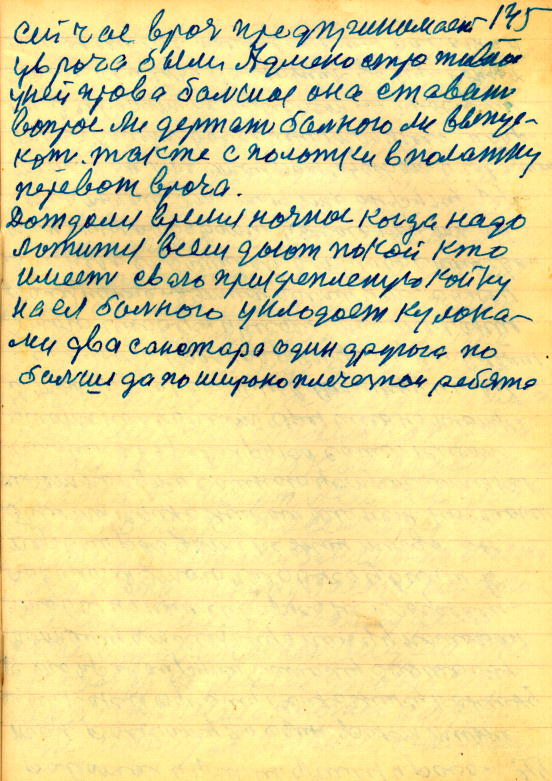 сейчас врач предпринимает 145
у врача были Адменостративной
у ней права болшие она ставит
вопрос ли держат болного ли выпус-
кат. также с полатки в полатку
перевот врача.
Дождали время ночное когда надо
ложится всем дают покой кто
имеет свою прикрепленую койку
наел болного уклодоет кулока-
ми два санетара один другога по
болше да по широкоплечетой ребята